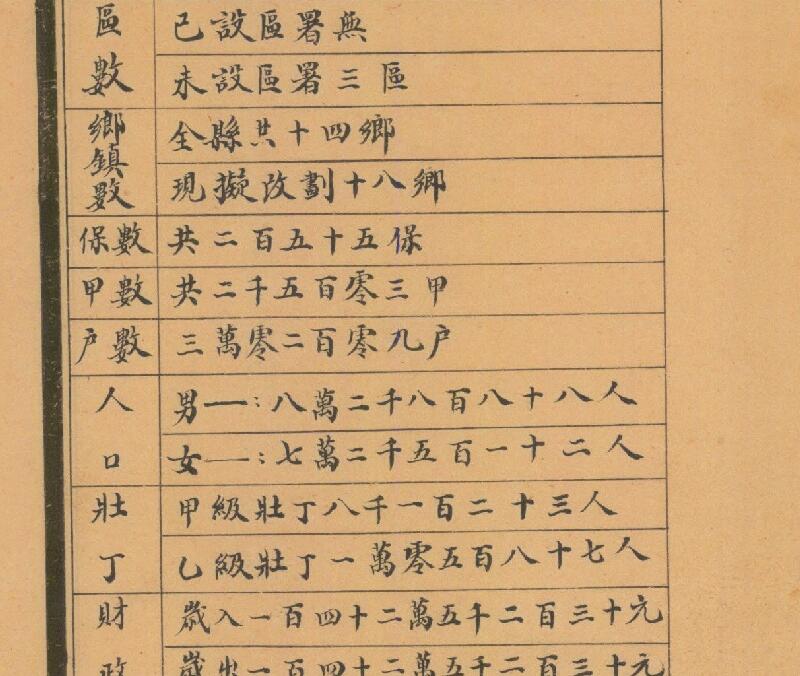 區數
已設區署無
未設區署三區
鄉鎮數
全縣共十四鄉
現擬改劃十八鄉
保數
共二百五十五保
甲數
共二千五百零三甲
户數
三萬零二百零九户
人口
男——：八萬二千八百八十八人
女——：七萬二千五百一十二人
壯丁
甲級壯丁八千一百二十三人
乙級壯丁一萬零五百八十七人
財政
歲入一百四十二萬五千二百三十元
歲出一百四十二萬五千二百三十元